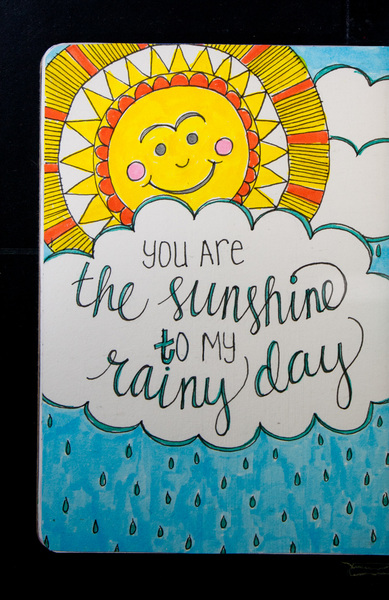 you Are
the sunshine
to my
rainy day